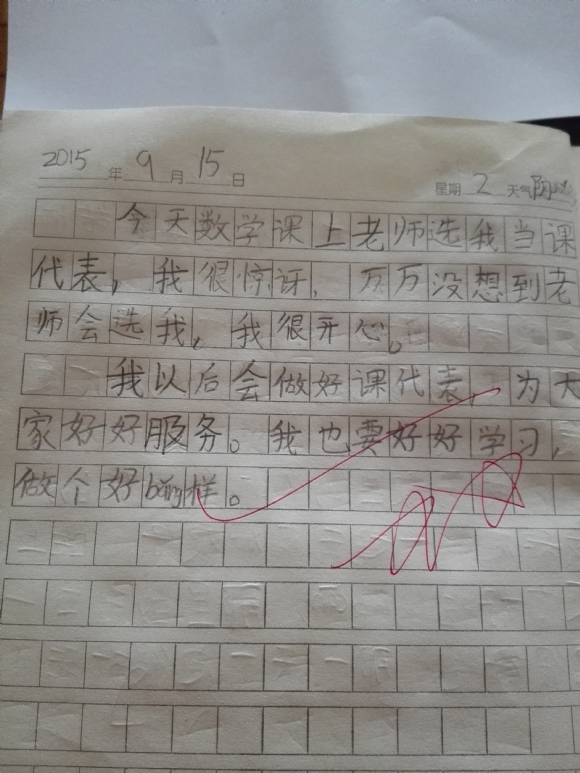 2015年9月15日
星期2 天气阴
今天数学课上老师选我当课
代表，我很惊讶，万万没想到老
师会选我，我很开心。
我以后会做好课代表，为大
家好好服务。我也要好好学习，
做个好bǎng样。